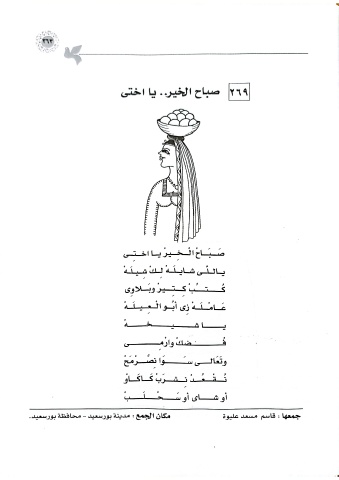 ٢٦٣
٢٦٩ صباح الخير.. يا اختى
صَبَاحْ الْخِيرْ يا اختِى
ياللى شايلَهْ لكْ شيلَهْ
كُتُبْ كِتِيرْ وبَلاوِى
عَامْلَهْ زى أبُو العِيلَهْ
يا شيخَهْ
فُضّكْ وارْمِى
وتَعَالِى سَوَا نِصْرَمَحْ
نُقْعُدْ نِشْرَبْ كَاكَاوْ
أو شاى أو سَحْلَبْ
جمعها : قاسم مسعد عليوة مكان الجمع : مدينة بورسعيد - محافظة بورسعيد.